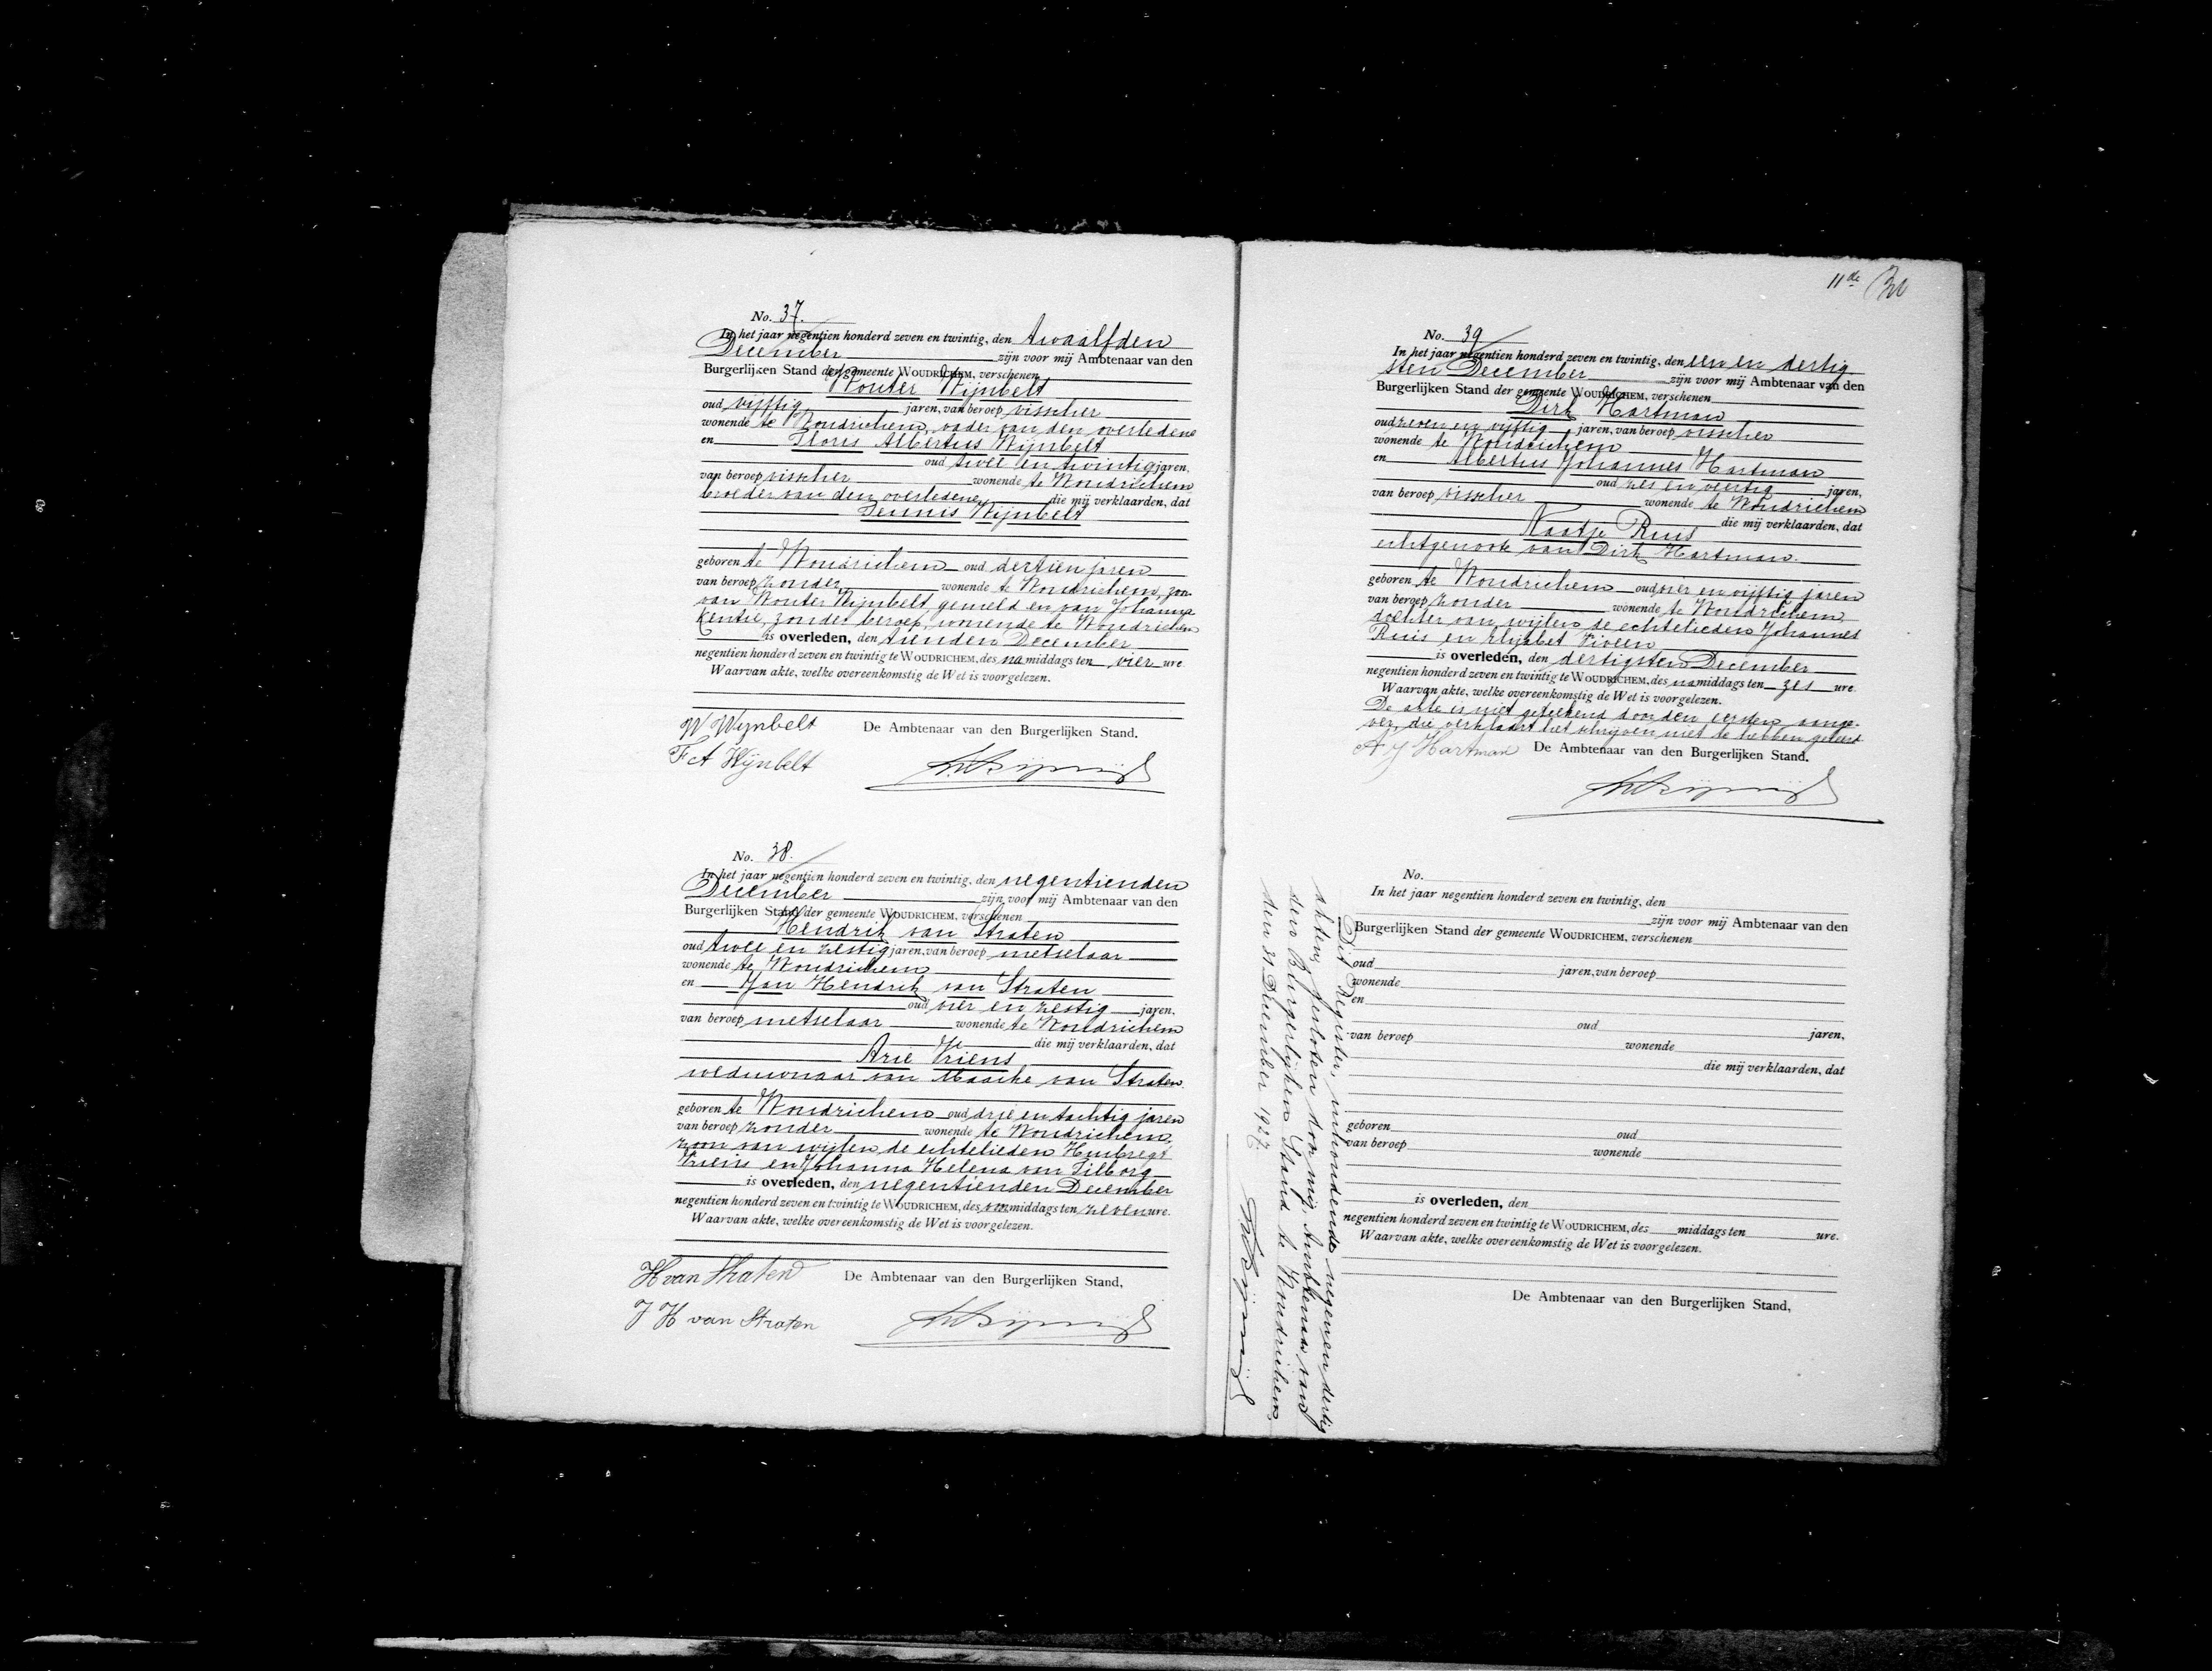 No. 37.
In het jaar negentien honderd zeven en twintig, den twaalfden
December zijn voor mij Ambtenaar van den
Burgerlijken Stand der gemeente WOUDRICHEM, verschenen
Wouter Wijnbelt
oud vijftig jaren, van beroep visscher
wonende te Woudrichem, vader van den overledene
en Floris Albertus Wijnbelt
oud twee en twintig jaren,
van beroep visscher wonende te Woudrichem
broeder van den overledene, die mij verklaarden, dat
Teunis Wijnbelt
geboren te Woudrichem oud dertien jaren
van beroep zonder wonende te Woudrichem, zoon
van Wouter Wijnbelt, gemeld en van Johanna
Kentie, zonder beroep, wonende te Woudrichem
is overleden, den tienden December
negentien honderd zeven en twintig te WOUDRICHEM, des namiddags ten vier ure
Waarvan akte, welke overeenkomstig de Wet is voorgelezen.
W Wijnbelt De Ambtenaar van den Burgerlijken Stand.
F A Wijnbelt
No. 38.
In het jaar negentien honderd zeven en twintig, den negentienden
December zijn voor mij Ambtenaar van den
Burgerlijken Stand der gemeente WOUDRICHEM, verschenen
Hendrik van Straten
oud twee en zestig jaren, van beroep metselaar
wonende te Woudrichem
en Jan Hendrik van Straten
oud vier en zestig jaren,
van beroep metselaar wonende te Woudrichem
die mij verklaarden, dat
Arie Vriens
weduwnaar van Maaike van Straten
geboren te Woudrichem oud drie en tachtig jaren
van beroep zonder wonende te Woudrichem,
zoon van wijlen de echtelieden Huibregt
Vriens en Johanna Helena van Tilborg
is overleden, den negentienden December
negentien honderd zeven en twintig te WOUDRICHEM, des voormiddags ten zeven ure.
Waarvan akte, welke overeenkomstig de Wet is voorgelezen.
H van Straten De Ambtenaar van den Burgerlijken Stand,
J H van Straten
11de
No. 39
In het jaar negentien honderd zeven en twintig, den een en dertig
sten December zijn voor mij Ambtenaar van den
Burgerlijken Stand der gemeente WOUDRICHEM, verschenen
Dirk Hartman
oud zeven en vijftig jaren, van beroep visscher
wonende te Woudrichem
en Albertus Johannes Hartman
oud zes en veertig jaren,
van beroep visscher wonende te Woudrichem
die mij verklaarden, dat
Naatje Ruis
echtgenoote van Dirk Hartman.
geboren te Woudrichem oud vier en vijftig jaren
van beroep zonder wonende te Woudrichem,
dochter van wijlen de echtelieden Johannes
Ruis en Elizabet
is overleden, den dertigsten December
negentien honderd zeven en twintig te WOUDRICHEM, des namiddags ten zes ure
Waarvan akte, welke overeenkomstig de Wet is voorgelezen.
De akte is niet geteekend door den eersten aange-
ver, die verklaart het schrijven niet te hebben geleerd
A J Hartman De Ambtenaar van den Burgerlijken Stand.
No.
In het jaar negentien honderd zeven en twintig, den
zijn voor mij Ambtenaar van den
Burgerlijken Stand der gemeente WOUDRICHEM, verschenen
oud jaren, van beroep
wonende
en
oud jaren,
van beroep wonende
die mij verklaarden, dat
geboren oud
van beroep wonende
is overleden, den
negentien honderd zeven en twintig te WOUDRICHEM, des middags ten ure.
Waarvan akte, welke overeenkomstig de Wet is voorgelezen.
De Ambtenaar van den Burgerlijken Stand,
Dit Register, inhoudende negen en dertig
akten, gesloten door mij, Ambtenaar van
den Burgerlijken Stand te Woudrichem,
den 31 December 1927.